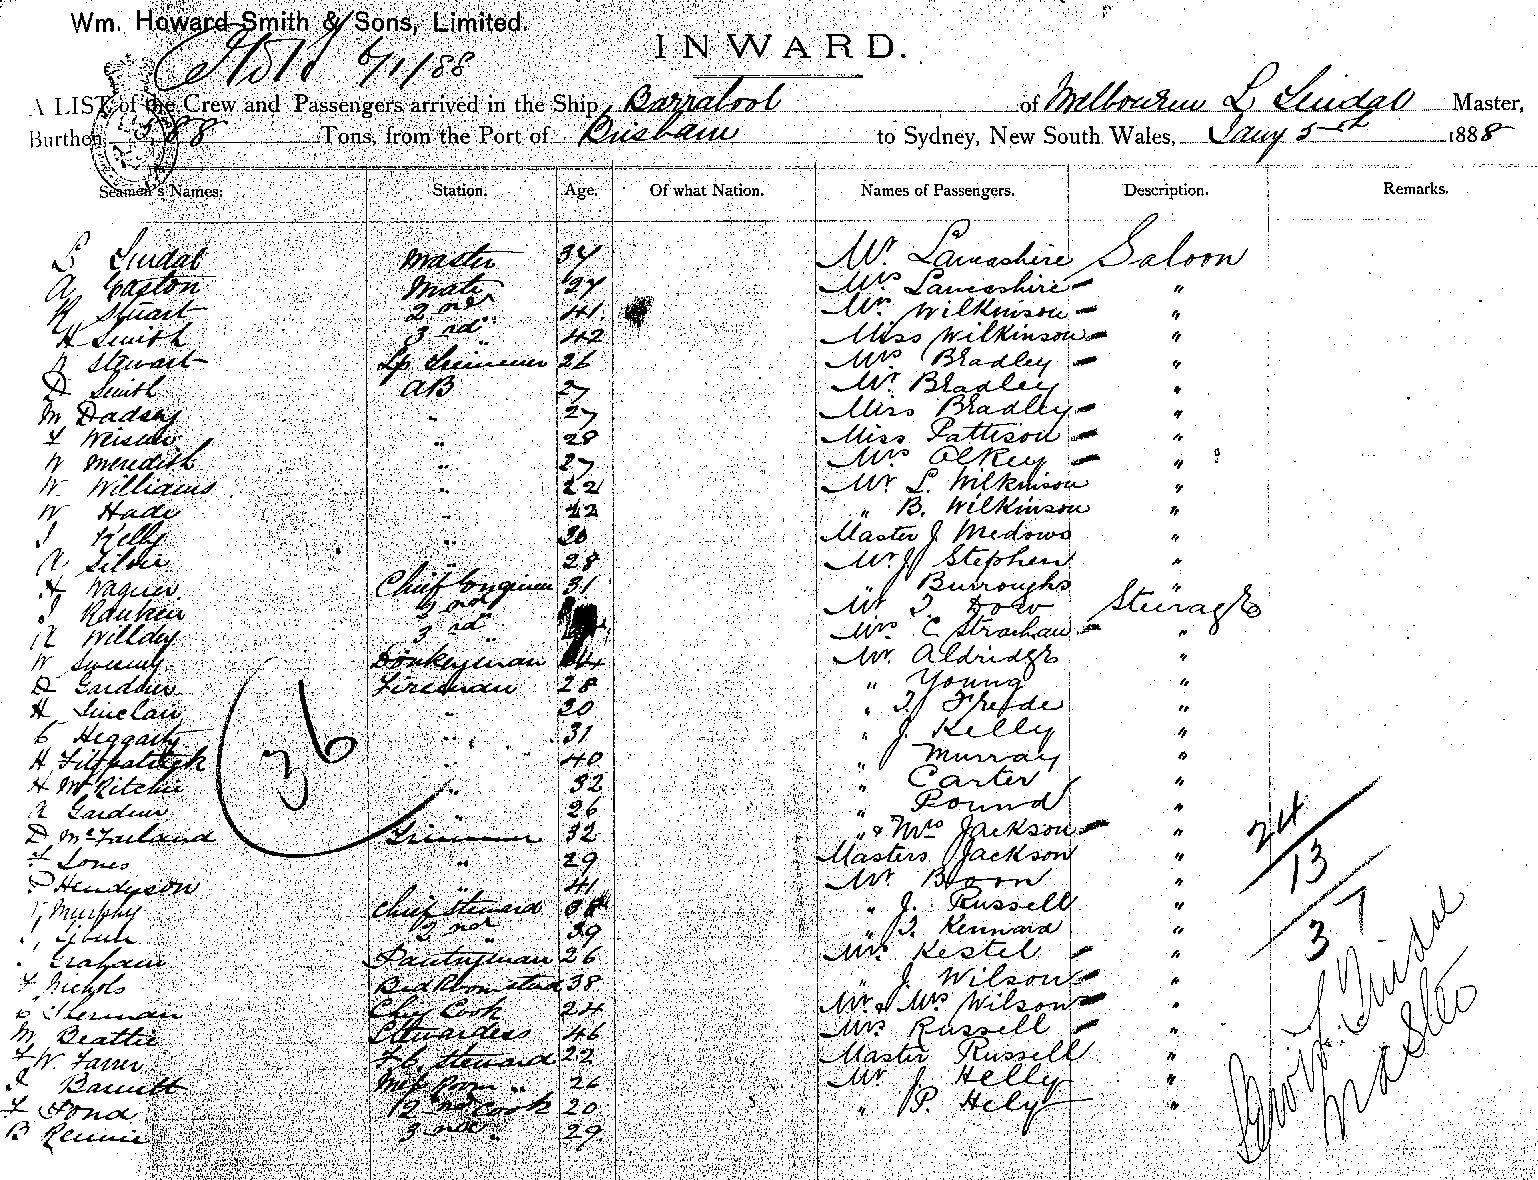 Wm. Howard Smith & Sons, Limited.
6/1/88
INWARD.
A LIST of the Crew and Passengers arrived in the Ship Barrabool of Melbourne L Lindal Master,
Burthen 588 Tons, from the Port of Brisbane to Sydney, New South Wales, Jany 5th 1888
Seamen's Names. Station. Age. Of what Nation. Names of Passengers. Description. Remarks.
L Lindal Master 34 Mr Lancashire Saloon
A Easton Mate 27 Mrs Lancashire "
R Stuart 2nd " 41 Mr Wilkinson "
H Smith 3rd " 42 Miss Wilkinson "
Stewart Lp Trimmer 26 Mrs Bradley "
D Smith AB 27 Mr. Bradley "
M Dadsey " 27 Miss Bradley "
" 28 Miss Pattison "
W Meredith " 27 Mrs "
W. Williams " 22 Mr L. Wilkinson "
W Hade " 22 " B. Wilkinson "
J Kelly " 30 Master J Medows "
" 28 Mr J Stephen "
H Wagner Chief Engineer 31 " Burroughs "
J Rankin 2nd " Mr T. Dow Steerage
R Willdey 3rd " Mrs C Strachan "
W Sweeny Donkeyman 34 Mr. Aldridge "
D Gardner Fireman 28 " Young "
H Sinclair " 30 " T. Freide "
C Heggarty " 31 " J. Kelly "
H Fitzpatrick " 40 " Murray "
H McRitchie " 32 " Carter "
A Gardner " 26 " Pound "
D McFarland Trimmer 32 " & Mrs Jackson "
Jones " 29 Masters Jackson "
Henderson " 41 Mr. Boon "
Murphy Chief Steward 38 " J. Russell "
2nd " 39 " T. Kennard "
Graham Pantryman 26 Mrs Kestel "
F Nichols Bed Room Steward 38 " J. Wilson "
Sherman Chief Cook 24 Mr & Mrs Wilson "
M Beattie Stewardess 46 Mrs Russell "
F W Farrer F.C. Steward 22 Master Russell "
J Barnett Mess Room " 26 Mr J Helly "
F Fond 2nd Cook 20 " P. Hely "
B Rennie 3rd " 29
36
24
13
37
L. Lindal
Master